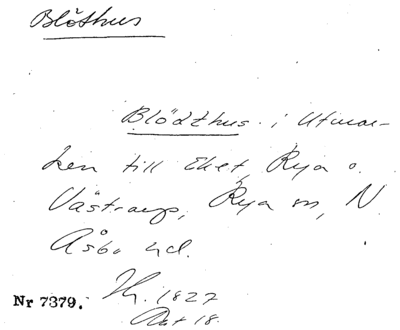 Blöthus
Blödthus i Utmar-
ken till Eket, Rya o.
Västraup, Rya sn, N.
Åsbo hd.
Nr 7379.
1827
Akt 18.